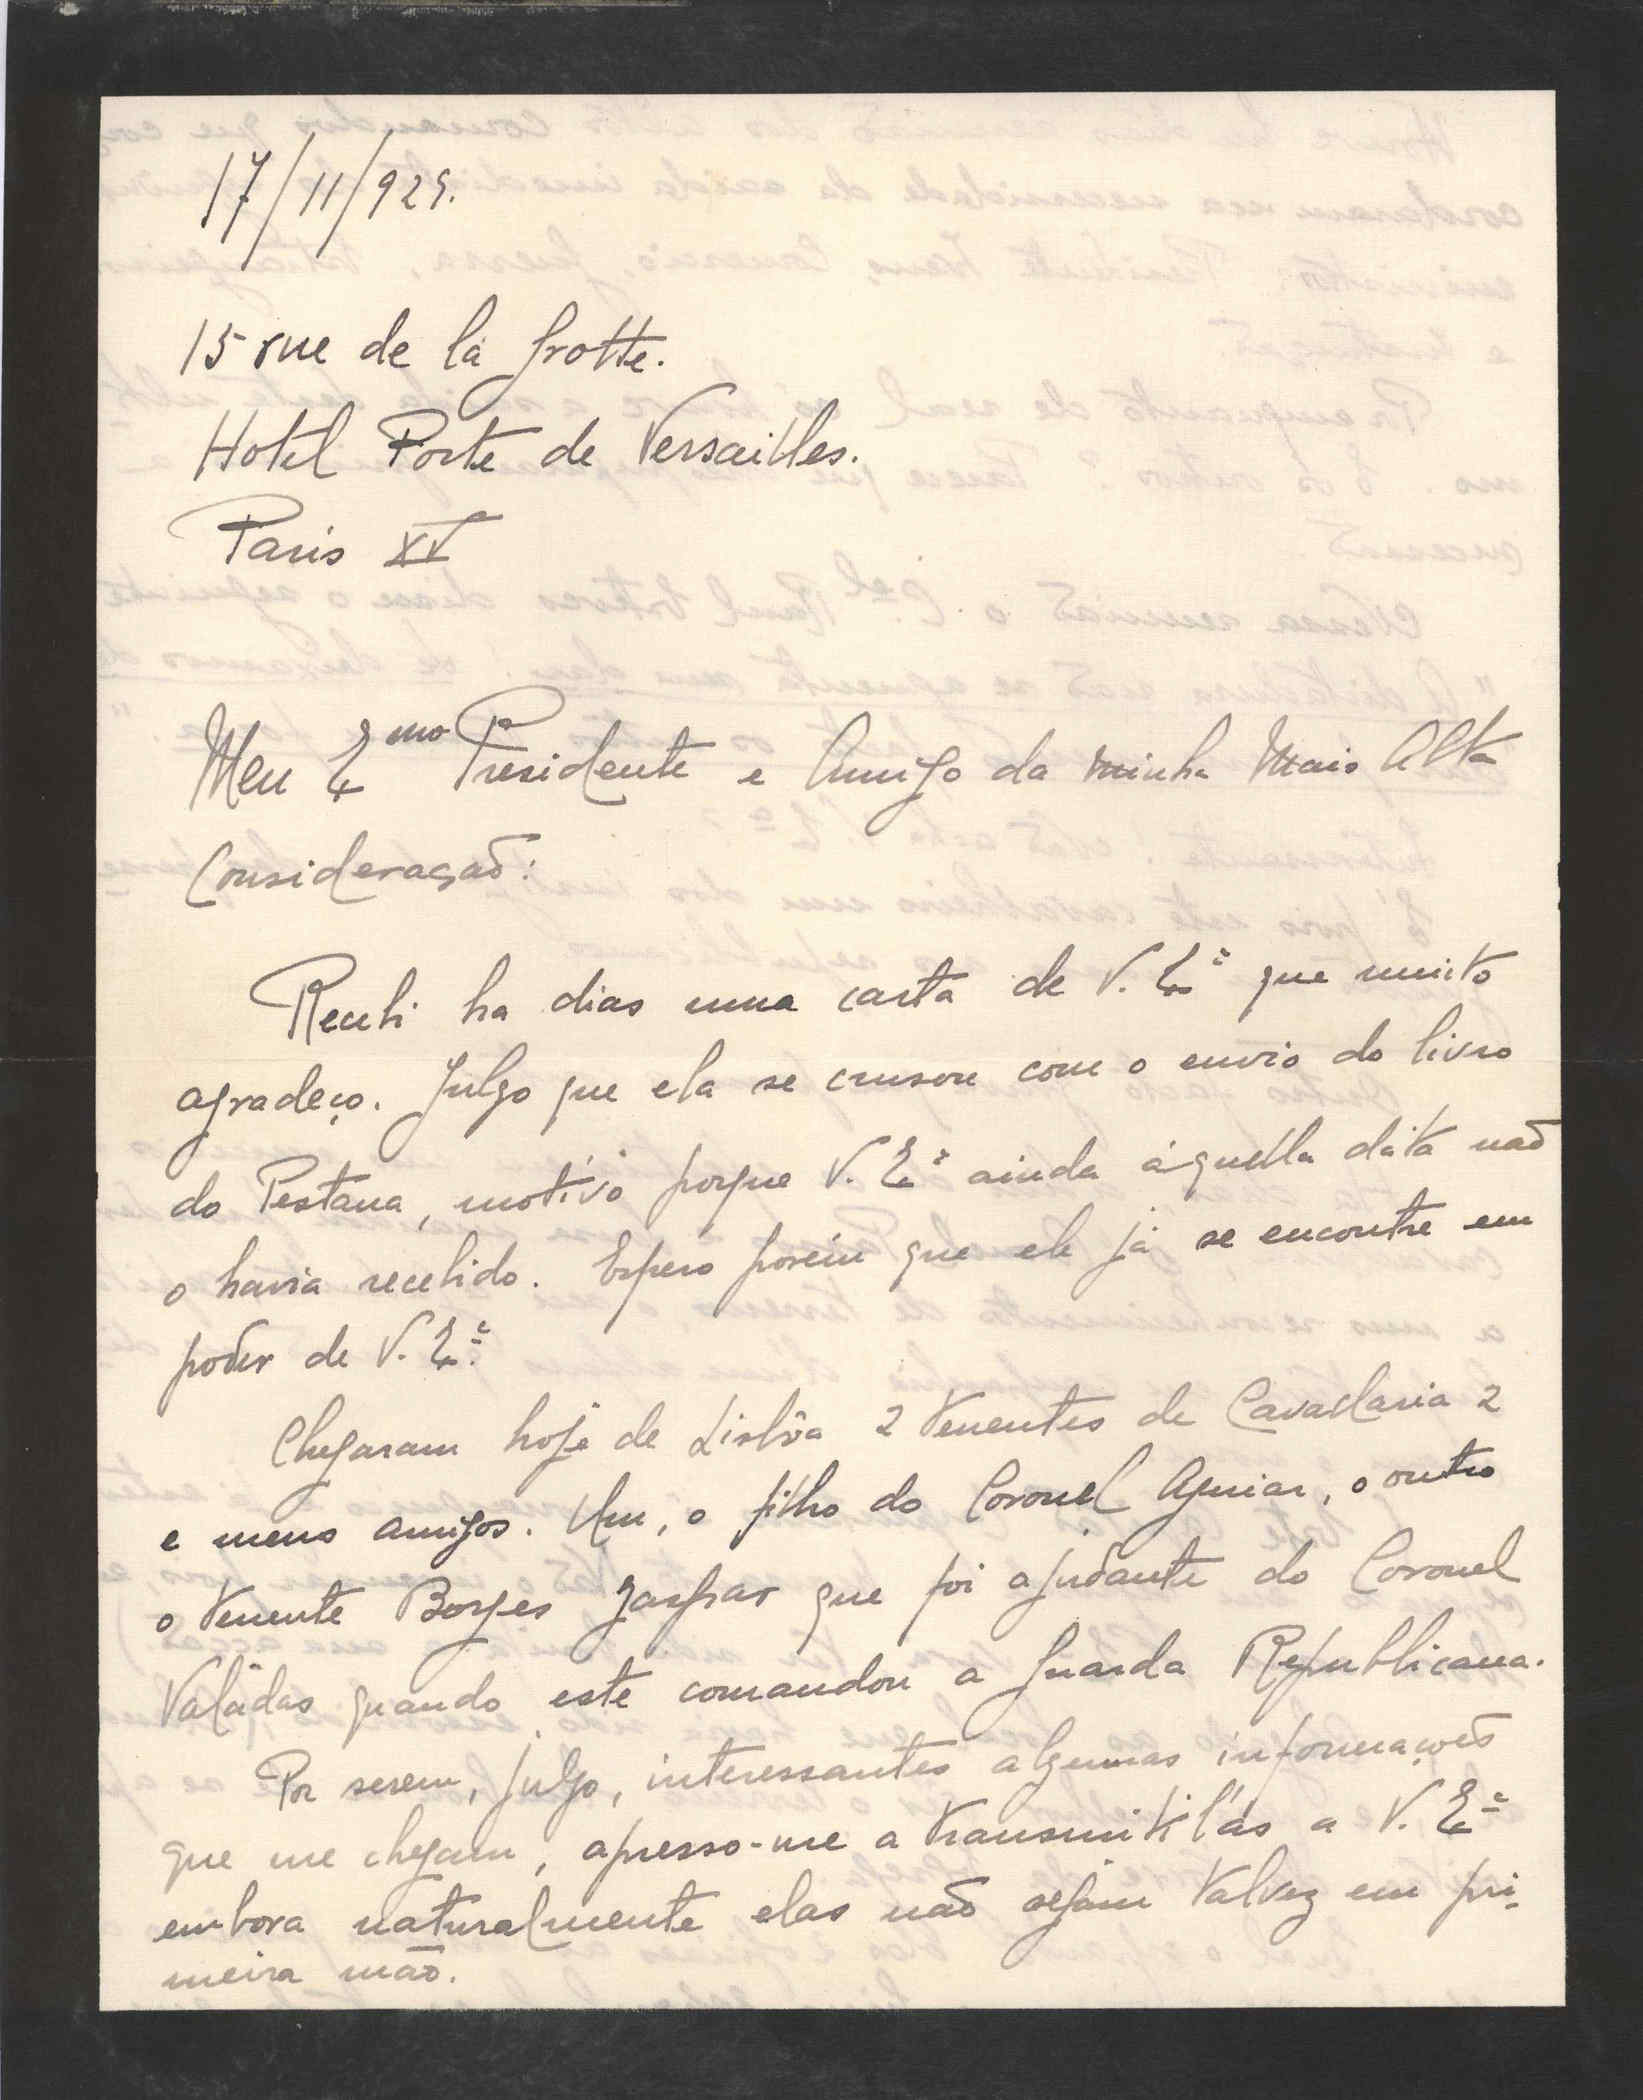 17/11/929.
15 rue de la Grotte.
Hotel Porte de Versailles.
Paris XV
Meu Exmo Presidente e Amigo da minha Mais Alta
Consideração:
Recebi ha dias uma carta de V. Exª que muito
agradeço. Julgo que ela se crusou com o envio do livro
do Pestana, motivo porque V. Exª ainda áquella data não
o havia recebido. Espero porém que ele já se encontre em
poder de V. Exª.
Chegaram hoje de Lisbôa 2 tenentes de Cavallaria 2
e meus amigos. Um, o filho do Coronel Aguiar, o outro
o tenente Borges Gaspar que foi ajudante do Coronel
Valadas quando este comandou a Guarda Republicana.
Por serem, julgo, interessantes algumas informações
que me chegam, apresso-me a transmitil'as a V. Exª
embora naturalmente elas não sejam talvez em pri-
meira mão.